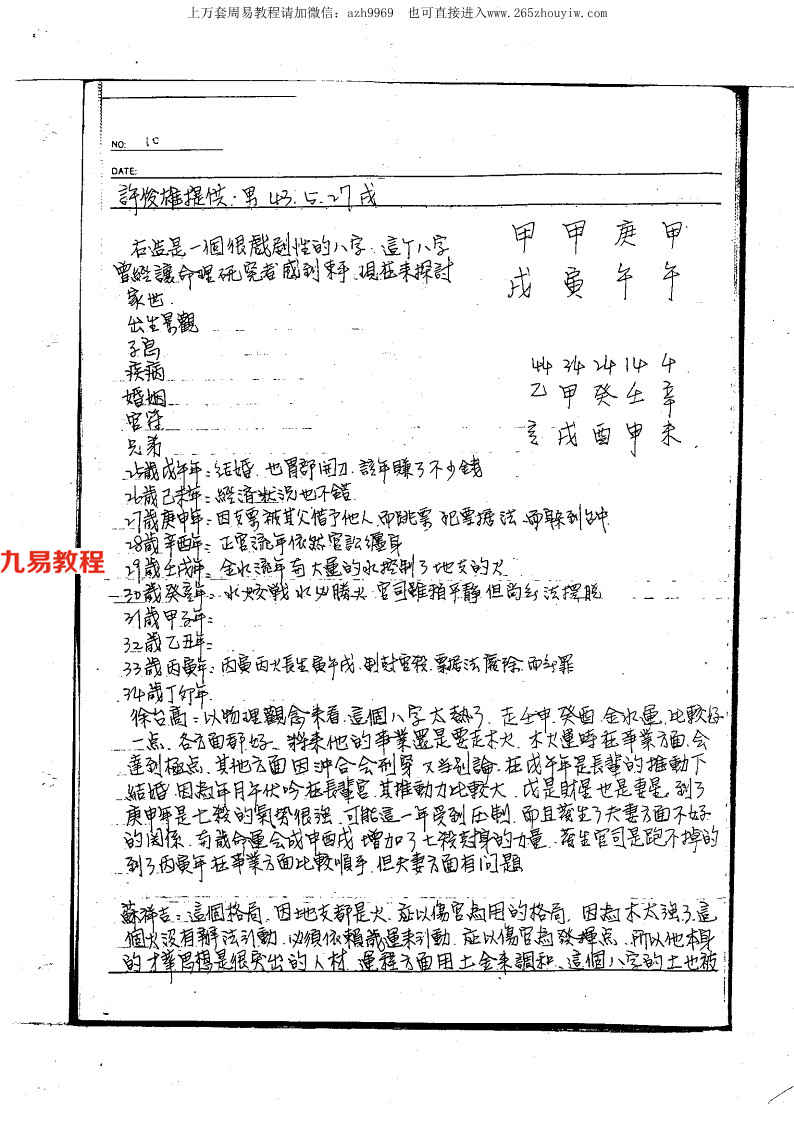 上万套周易教程请加微信：azh9969 也可直接进入www.265zhouyiw.com
NO: 10
DATE:
許俊雄提供．男 43.5.27戌
甲 甲 庚 甲
戌 寅 午 午
右造是一個很戲劇性的八字．這个八字
曾經讓命理研究者感到束手．現在來探討
家世．
出生景觀
子息
疾病
婚姻
官符
兄弟
44 34 24 14 4
乙 甲 癸 壬 辛
亥 戌 酉 申 未
25歲戊午年：結婚．也胃部開刀．該年賺了不少錢
26歲己未年：經濟狀況也不錯．
27歲庚申年：因支票被其父借予他人．而跳票．犯票據法．而躲到台中
28歲辛酉年：正官流年依然官訟纏身
29歲壬戌年：金水流年有大量的水控制了地支的火
30歲癸亥年：水火交戰 水必勝火 官司雖稍平靜但尚無法擺脫
31歲甲子年：
32歲乙丑年：
33歲丙寅年：丙寅丙火長生寅午戌．制尅官殺．票據法廢除．而無罪
34歲丁卯年．
徐台高：以物理觀念來看．這個八字太熱了．走壬申．癸酉．金水運．比較好
一点．各方面都好．將來他的事業還是要走木火．木火運時在事業方面．會
達到極点．其他方面因沖合會刑穿又當別論．在戊午年是長輩的推動下
結婚．因為年月年伏吟在長輩宮．其推動力比較大．戊是財星也是妻星．到了
庚申年是七殺的氣勢很強．可能這一年受到压制．而且發生了夫妻方面不好
的関係．有歲命運会成申酉戌．增加了七殺尅身的力量．發生官司是跑不掉的
到了丙寅年在事業方面比較順手．但夫妻方面有問題
蘇祥吉：這個格局．因地支都是火．應以傷官為用的格局．因為木太強了．這
個火沒有辦法引動．必須依賴歲運來引動．應以傷官為發揮点．所以他本身
的才華思想是很突出的人材．運程方面用土金來調和、這個八字的土也被
九易教程